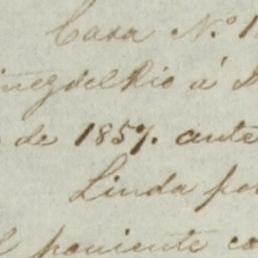 Casa N.º 1
iñez del Rio á D
de 1857. ante
Linda por
l poniente co